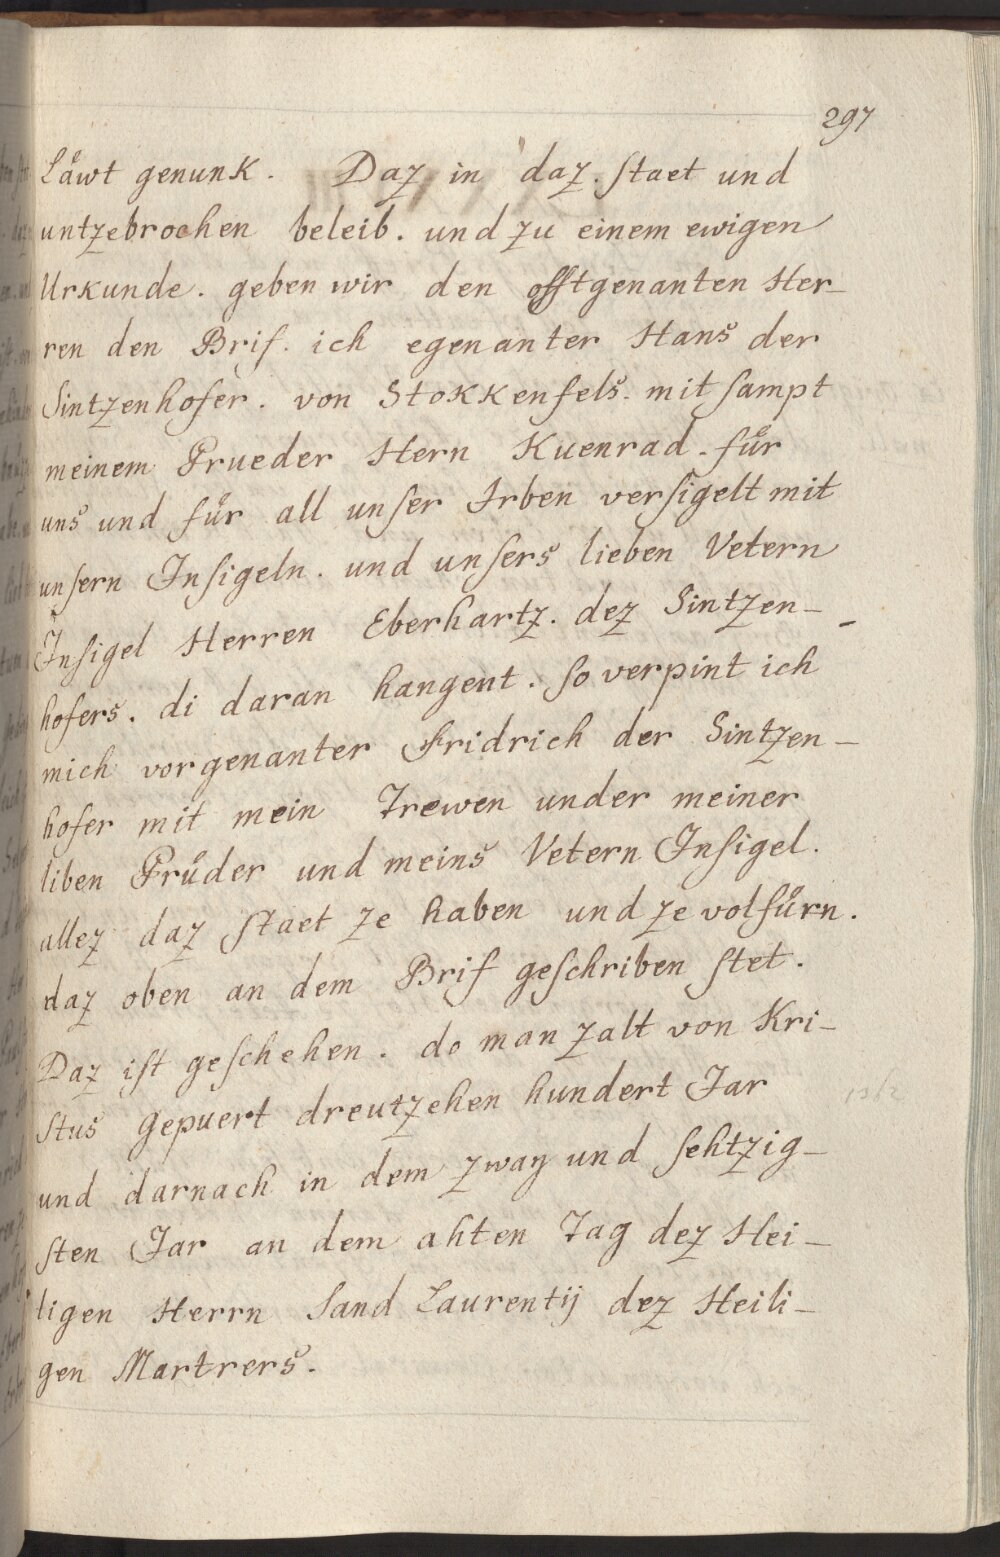 297
Låwt genunk. Daz in daz. ſtaet und
untzebrochen beleib. und zu einem ewigen
Urkunde. geben wir den offtgenanten Her-
ren den Brif. ich egenanter Hans der
Sintzenhofer. von Stokkenfels. mit ſampt
meinem Prueder Hern Kuenrad. fůr
uns und fůr all unſer Irben verſigelt mit
unſern Inſigeln. und unſers lieben Vetern
Inſigel Herren Eberhartz. dez Sintzen-
hofers. di daran hangent. ſo verpint ich
mich vorgenanter Fridrich der Sintzen-
hofer mit mein Trewen under meiner
liben Průder und meins Vetern Inſigel.
allez daz ſtaet ze haben und ze volfůrn.
daz oben an dem Brif geſchriben ſtet.
Daz iſt geſchehen. do man zalt von Kri-
ſtus gepuert dreutzehen hundert Jar
und darnach in dem zway und ſehtzig-
ſten Jar an dem ahten Tag dez Hei-
ligen Herrn Sand Laurentij dez Heili-
gen Martrers.
1362